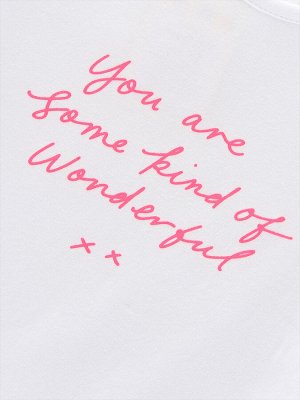 You are
some kind of
Wonderful
x x